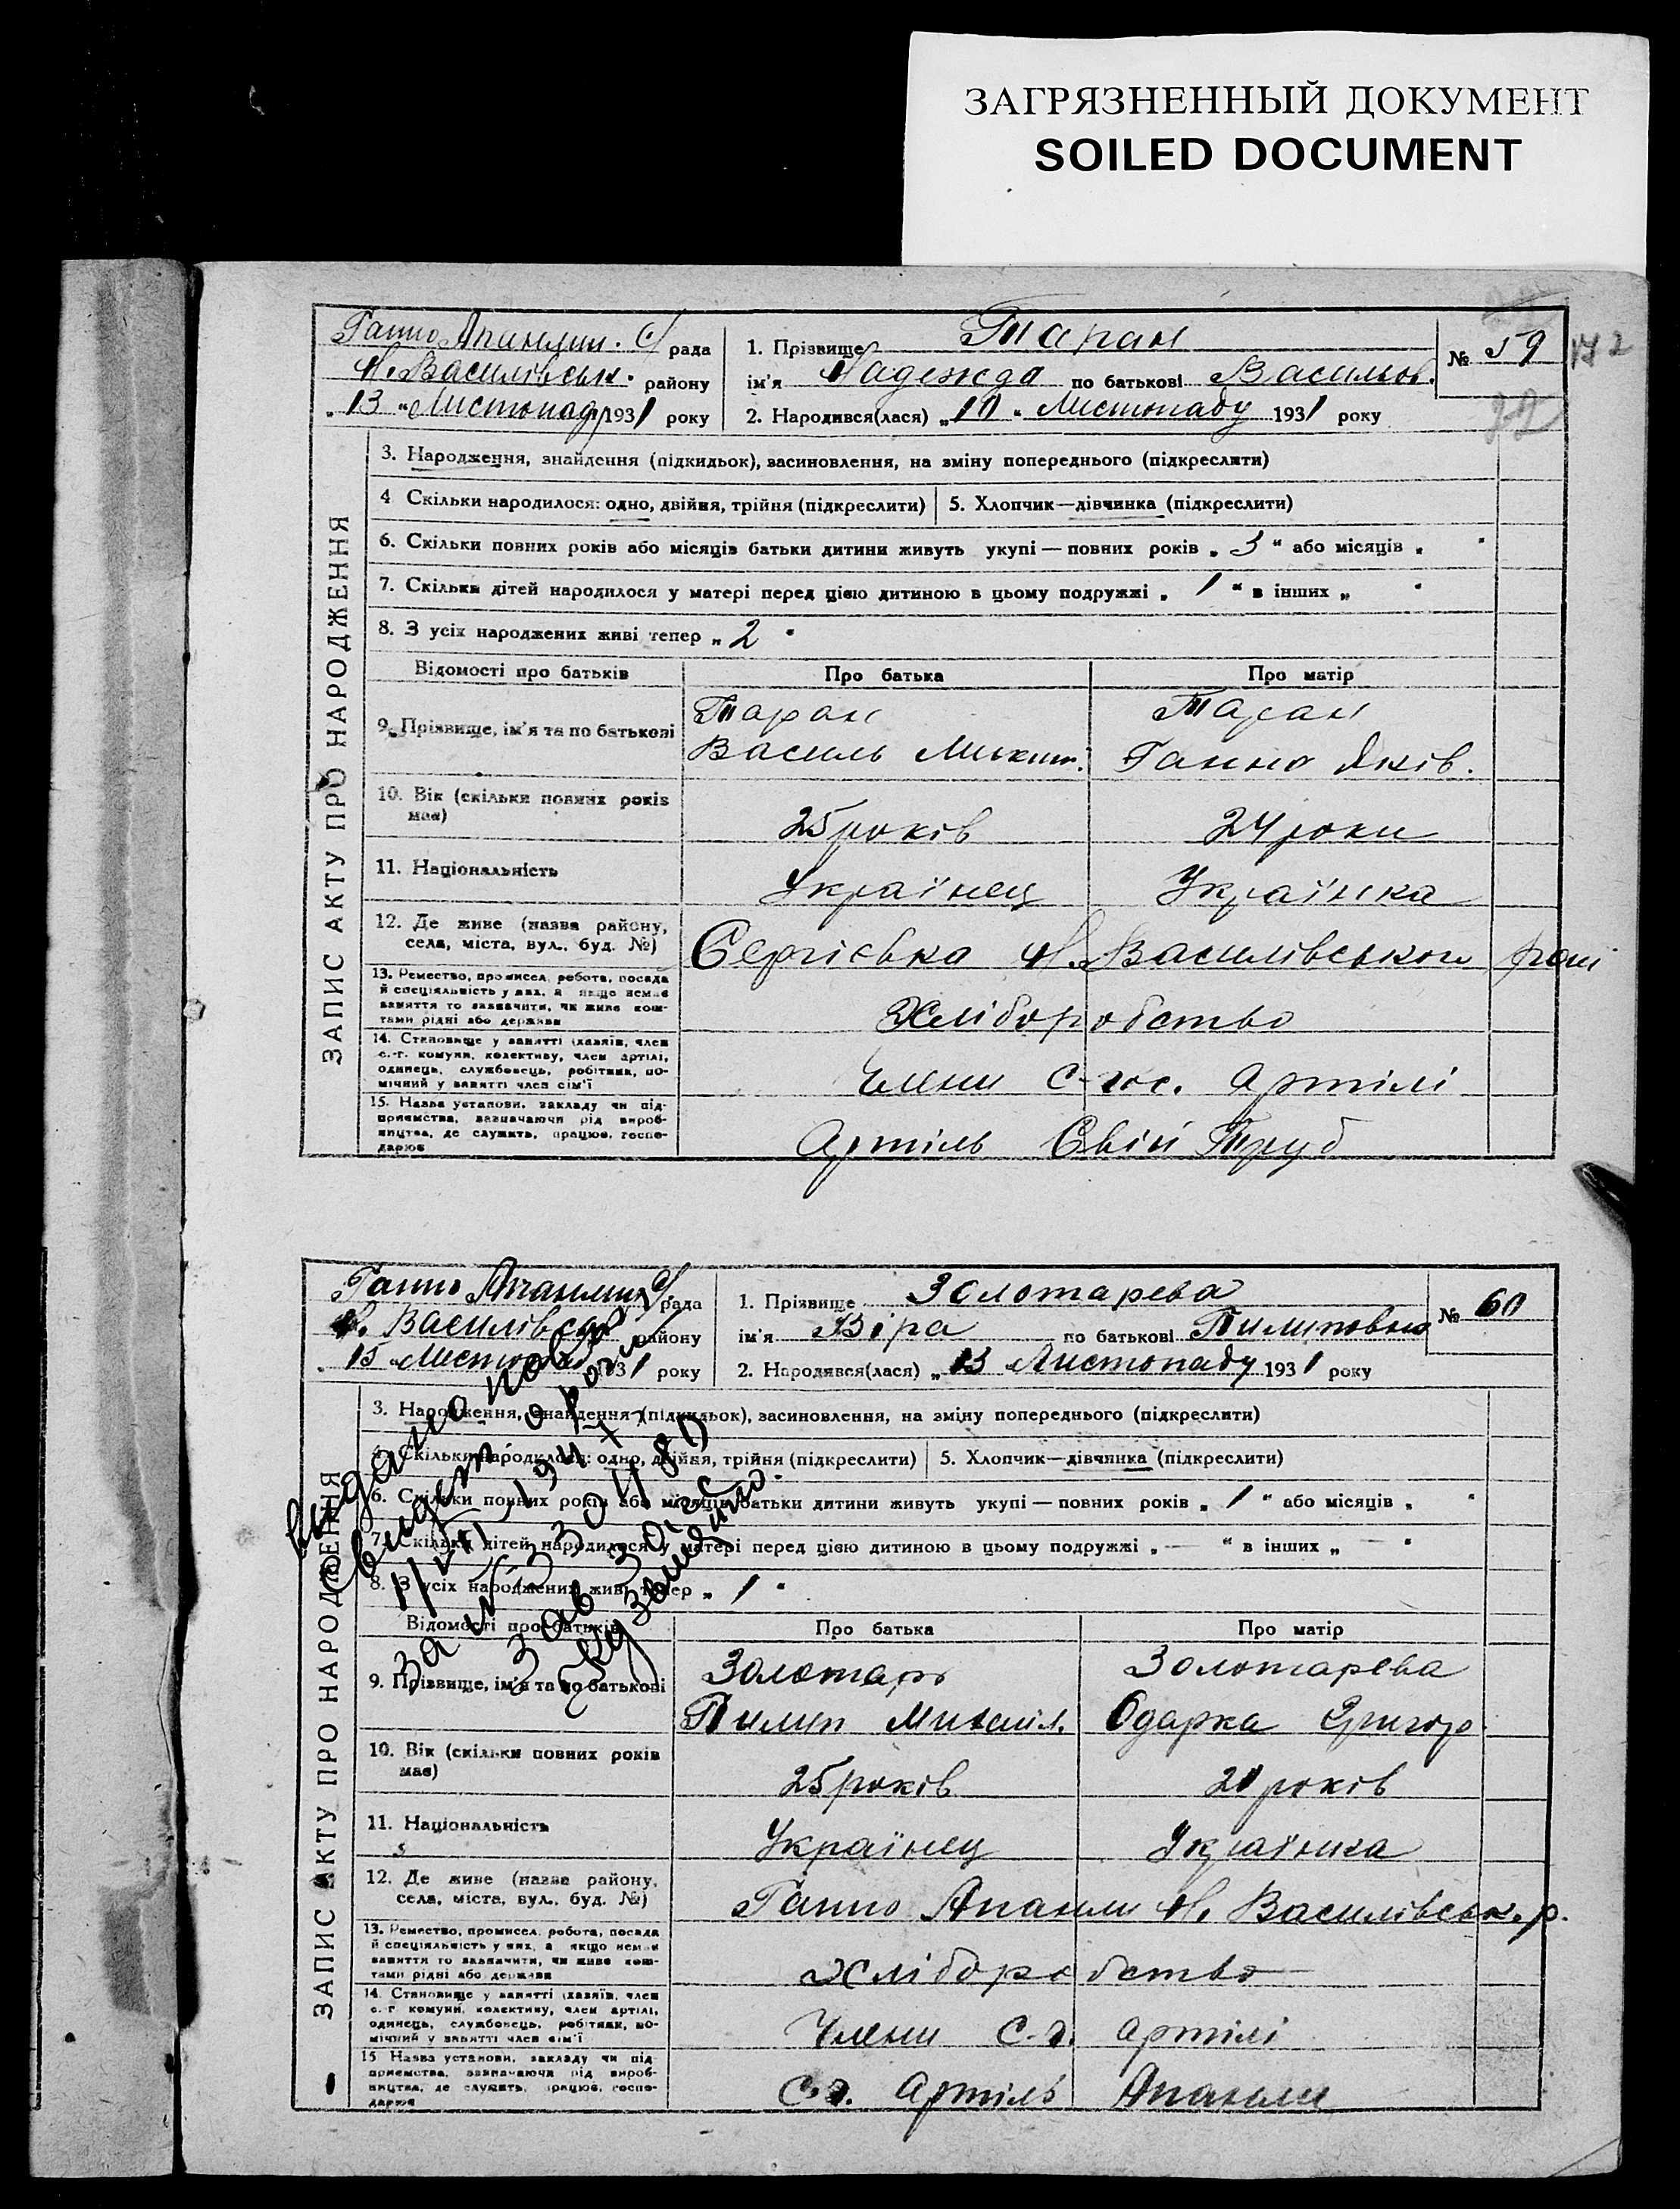 ЗАГРЯЗНЕННЫЙ ДОКУМЕНТ
SOILED DOCUMENT
ЗАПИС АКТУ ПРО НАРОДЖЕННЯ
рада
Н. Василівськ. району
"13" Листопаду 1931 року
1. Прізвище Таран
ім'я Надежда по батькові Васильов.
2. Народився(лася) „10" Листопаду 1931 року
№ 59
172
3. Народження, знайдення (підкидьок), засиновлення, на зміну попереднього (підкреслити)
4 Скільки народилося: одно, двійня, трійня (підкреслити) 5. Хлопчик—дівчинка (підкреслити)
6. Скільки повних років або місяців батьки дитини живуть укупі — повних років „ 3 " або місяців „ "
7. Скільки дітей народилося у матері перед цією дитиною в цьому подружжі „ 1 " в інших „ "
8. З усіх народжених живі тепер „ 2 "
Відомості про батьків Про батька Про матір
9. Прізвище, ім'я та по батькові
Таран Таран
Василь Микит. Ганна Яків.
10. Вік (скільки повних років має)
25 років 24 роки
11. Національність
Українец Українка
12. Де живе (назва району, села, міста, вул., буд. №)
Сергієвка Н. Василівського
13. Ремество, промисел, робота, посада й спеціяльність у них, а якщо немає заняття то зазначити, чи живе коштами рідні або держави
Хліборобство
14. Становище у занятті (хазяїн, член с.-г. комуни, колективу, член артілі, одинець, службовець, робітник, помічний у занятті член сім'ї
Члени с-гос. артілі
15. Назва установи, закладу чи підприємства, зазначаючи рід виробництва, де служить, працює, господарює
Артіль Свій Труд
ЗАПИС АКТУ ПРО НАРОДЖЕННЯ
рада
Н. Василівськ району
"15" Листопаду 1931 року
1. Прізвище Золотарева
ім'я Віра по батькові Пилиповна
2. Народився(лася) „13 Листопаду 1931 року
№ 60
3. Народження, знайдення (підкидьок), засиновлення, на зміну попереднього (підкреслити)
4. Скільки народилося: одно, двійня, трійня (підкреслити) 5. Хлопчик—дівчинка (підкреслити)
6. Скільки повних років або місяців батьки дитини живуть укупі — повних років „ 1 " або місяців „ "
7. Скільки дітей народилося у матері перед цією дитиною в цьому подружжі „ — " в інших „ — "
8. З усіх народжених живі тепер „ 1 "
Відомості про батьків Про батька Про матір
9. Прізвище, ім'я та по батькові
Золотарь Золотарева
Пилип Михайл. Одарка Григор.
10. Вік (скільки повних років має)
25 років 20 років
11. Національність
Українец Українка
12. Де живе (назва району, села, міста, вул., буд. №)
Н. Василівськ. р.
13. Ремество, промисел, робота, посада й спеціяльність у них, а якщо немає заняття то зазначити, чи живе коштами рідні або держави
Хліборобство
14. Становище у занятті (хазяїн, член с.-г. комуни, колективу, член артілі, одинець, службовець, робітник, помічний у занятті член сім'ї
Члени с.г. артілі
15 Назва установи, закладу чи підприємства, зазначаючи рід виробництва, де служить, працює, господарює
С.г. Артіль